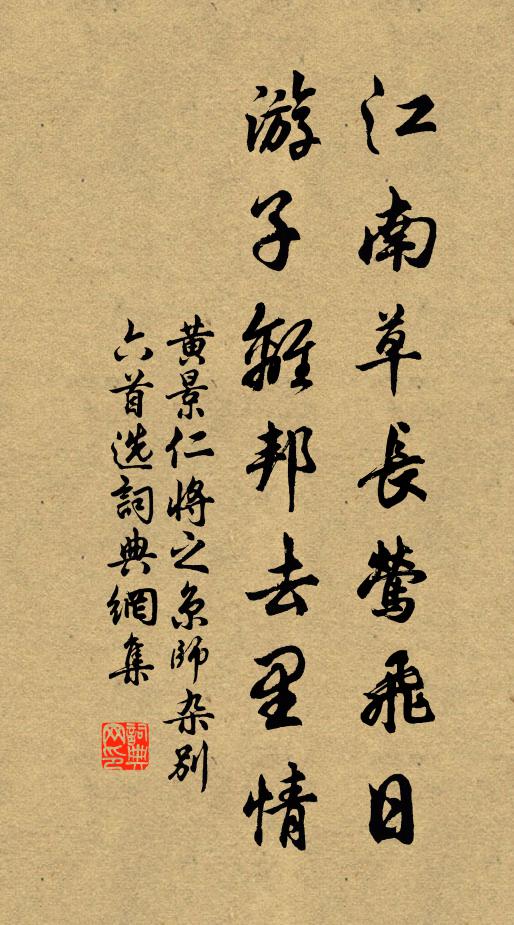 江南草長鶯飛日
游子離邦去里情
黄景仁將之京師杂别
六首选詞典網集
詞典
网印